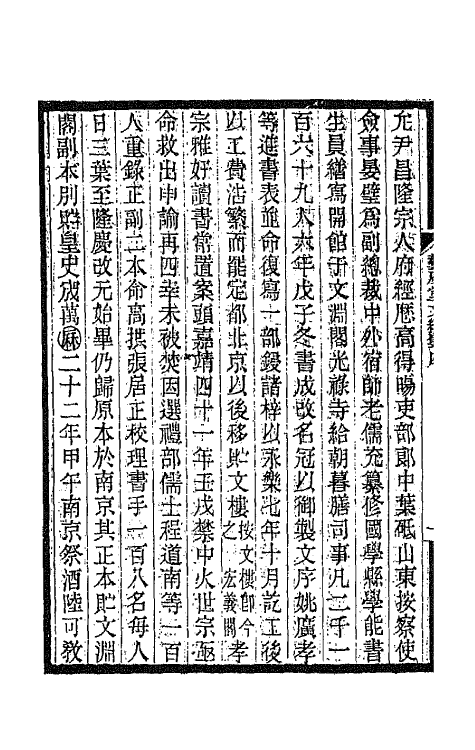 允尹昌隆宗人府經歷高得暘吏部郎中葉砥山東按察使
僉事晏璧爲副總裁中外宿師老儒充纂修國學縣學能書
生員繕寫開館于文淵閣光祿寺給朝暮膳司事凡二千一
百六十九人六年戊子冬書成改名冠以御製文序姚廣孝
等進書表並命復寫一部鋟諸梓以永樂七年十月訖工後
以工費浩繁而罷定都北京以後移貯文樓按文樓卽今之宏義閣孝
宗雅好讀書常置案頭嘉靖四十一年壬戌禁中火世宗亟
命救出申諭再四幸未被焚因選禮部儒士程道南等一百
人重錄正副二本命高拱張居正校理書手一百八名每人
日三葉至隆慶改元始畢仍歸原本於南京其正本貯文淵
閣副本別貯皇史宬萬曆二十二年甲午南京祭酒陸可教